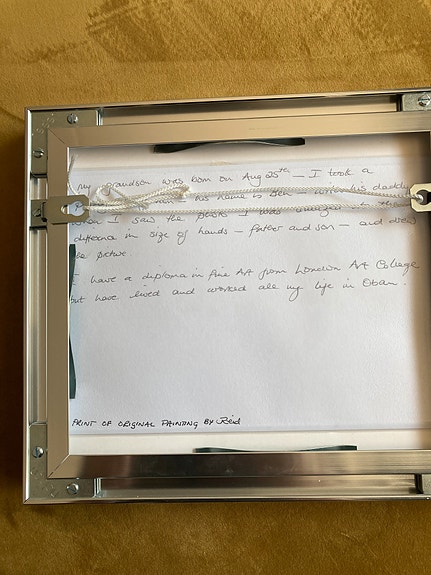 My grandson was born on Aug 25th — I took a
his name is Ben with his daddy
when I saw the photo I was amazed at the
difference in size of hands — father and son — and drew
the picture.
I have a diploma in Fine Art from London Art College
but have lived and worked all my life in Oban.
PRINT OF ORIGINAL PAINTING BY Reid